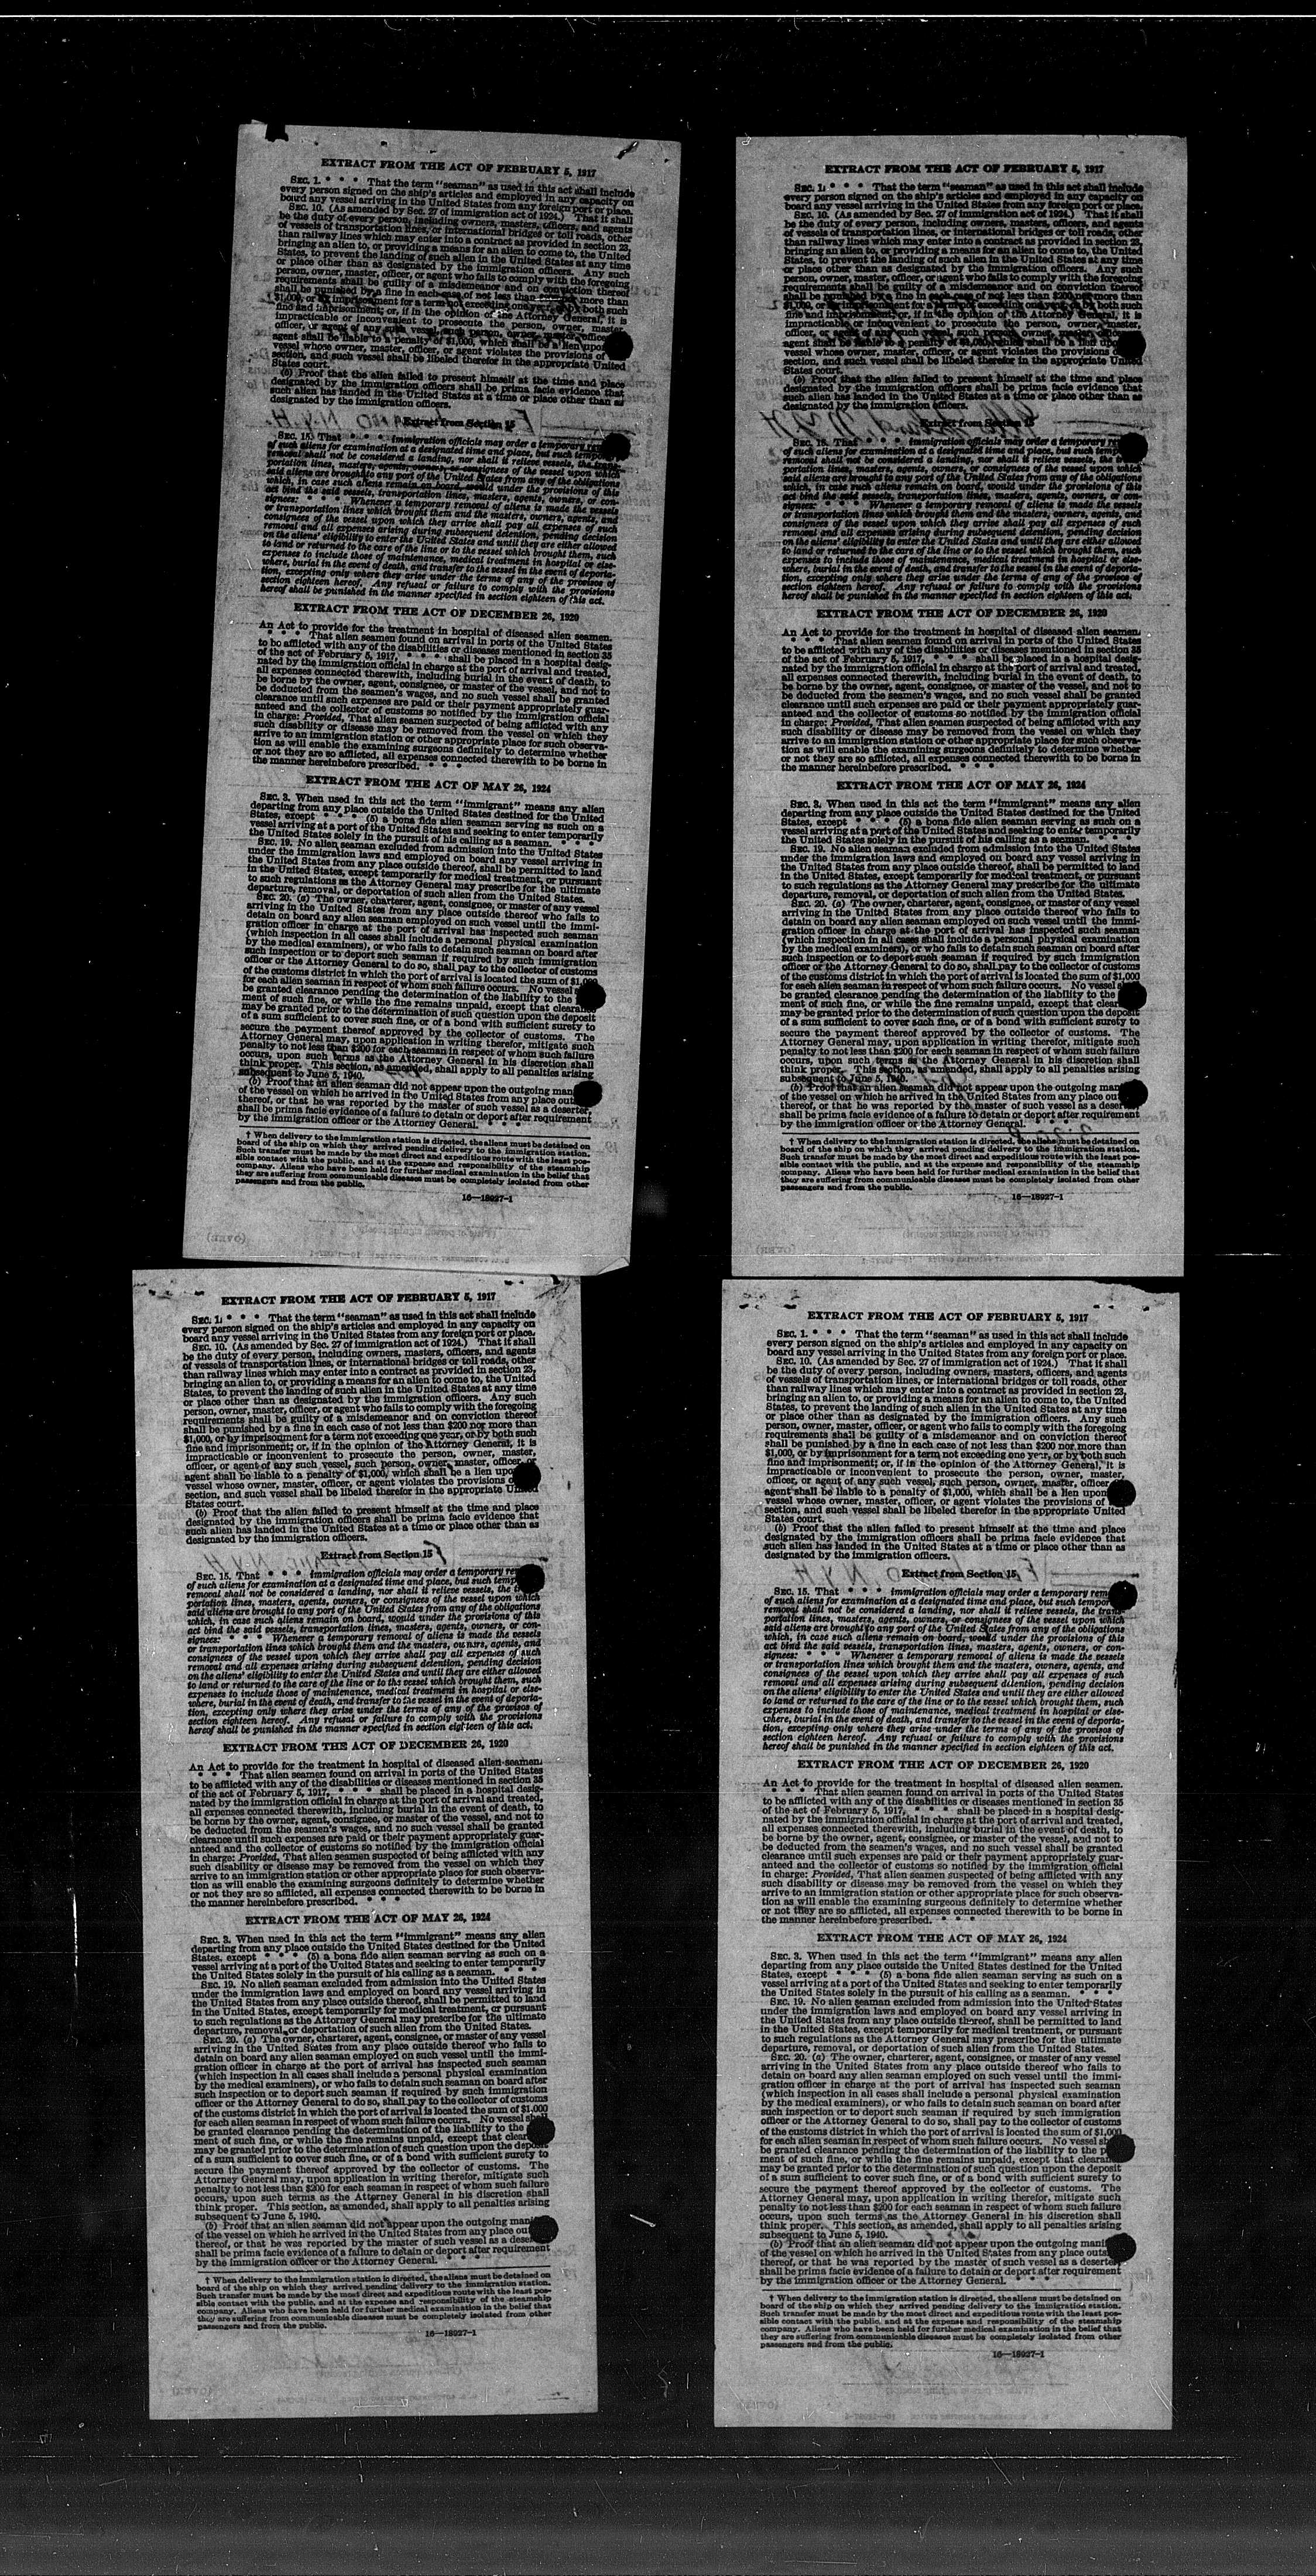 EXTRACT FROM THE ACT OF FEBRUARY 5, 1917
SEC. 1. * * * That the term "seaman" as used in this act shall include
every person signed on the ship's articles and employed in any capacity on
board any vessel arriving in the United States from any foreign port or place.
SEC. 10. (As amended by Sec. 27 of immigration act of 1924.) That it shall
be the duty of every person, including owners, masters, officers, and agents
of vessels of transportation lines, or international bridges or toll roads, other
than railway lines which may enter into a contract as provided in section 23,
bringing an alien to, or providing a means for an alien to come to, the United
States, to prevent the landing of such alien in the United States at any time
or place other than as designated by the immigration officers. Any such
person, owner, master, officer, or agent who fails to comply with the foregoing
requirements shall be guilty of a misdemeanor and on conviction thereof
shall be punished by a fine in each case of not less than more than
$1,000, or by imprisonment for a term not exceeding one year, or by both such
fine and imprisonment; or, if in the opinion of the Attorney General, it is
impracticable or inconvenient to prosecute the person, owner, master,
officer, or agent of any such vessel, such person, owner, master, officer
agent shall be liable to a penalty of $1,000, which shall be a lien upon
vessel whose owner, master, officer, or agent violates the provisions of
section, and such vessel shall be libeled therefor in the appropriate United
States court.
(b) Proof that the alien failed to present himself at the time and place
designated by the immigration officers shall be prima facie evidence that
such alien has landed in the United States at a time or place other than as
designated by the immigration officers.
Extract from Section 15
SEC. 15. That * * * immigration officials may order a temporary
of such aliens for examination at a designated time and place, but such
removal shall not be considered a landing, nor shall it relieve vessels, the trans-
portation lines, masters, agents, owners, or consignees of the vessel upon which
said aliens are brought to any port of the United States from any of the obligations
which, in case such aliens remain on board, would under the provisions of this
act bind the said vessels, transportation lines, masters, agents, owners, or con-
signees: * * * Whenever a temporary removal of aliens is made the vessels
or transportation lines which brought them and the masters, owners, agents, and
consignees of the vessel upon which they arrive shall pay all expenses of such
removal and all expenses arising during subsequent detention, pending decision
on the aliens' eligibility to enter the United States and until they are either allowed
to land or returned to the care of the line or to the vessel which brought them, such
expenses to include those of maintenance, medical treatment in hospital or else-
where, burial in the event of death, and transfer to the vessel in the event of deporta-
tion, excepting only where they arise under the terms of any of the provisos of
section eighteen hereof. Any refusal or failure to comply with the provisions
hereof shall be punished in the manner specified in section eighteen of this act.
EXTRACT FROM THE ACT OF DECEMBER 26, 1920
An Act to provide for the treatment in hospital of diseased alien seamen.
* * * That alien seamen found on arrival in ports of the United States
to be afflicted with any of the disabilities or diseases mentioned in section 35
of the act of February 5, 1917, * * * shall be placed in a hospital desig-
nated by the immigration official in charge at the port of arrival and treated,
all expenses connected therewith, including burial in the event of death, to
be borne by the owner, agent, consignee, or master of the vessel, and not to
be deducted from the seamen's wages, and no such vessel shall be granted
clearance until such expenses are paid or their payment appropriately guar-
anteed and the collector of customs so notified by the immigration official
in charge: Provided, That alien seamen suspected of being afflicted with any
such disability or disease may be removed from the vessel on which they
arrive to an immigration station or other appropriate place for such observa-
tion as will enable the examining surgeons definitely to determine whether
or not they are so afflicted, all expenses connected therewith to be borne in
the manner hereinbefore prescribed. * * *
EXTRACT FROM THE ACT OF MAY 26, 1924
SEC. 3. When used in this act the term "immigrant" means any alien
departing from any place outside the United States destined for the United
States, except * * * (5) a bona fide alien seaman serving as such on a
vessel arriving at a port of the United States and seeking to enter temporarily
the United States solely in the pursuit of his calling as a seaman. * * *
SEC. 19. No alien seaman excluded from admission into the United States
under the immigration laws and employed on board any vessel arriving in
the United States from any place outside thereof, shall be permitted to land
in the United States, except temporarily for medical treatment, or pursuant
to such regulations as the Attorney General may prescribe for the ultimate
departure, removal, or deportation of such alien from the United States.
SEC. 20. (a) The owner, charterer, agent, consignee, or master of any vessel
arriving in the United States from any place outside thereof who fails to
detain on board any alien seaman employed on such vessel until the immi-
gration officer in charge at the port of arrival has inspected such seaman
(which inspection in all cases shall include a personal physical examination
by the medical examiners), or who fails to detain such seaman on board after
such inspection or to deport such seaman if required by such immigration
officer or the Attorney General to do so, shall pay to the collector of customs
of the customs district in which the port of arrival is located the sum of $1,000
for each alien seaman in respect of whom such failure occurs. No vessel
be granted clearance pending the determination of the liability to the
ment of such fine, or while the fine remains unpaid, except that clearance
may be granted prior to the determination of such question upon the deposit
of a sum sufficient to cover such fine, or of a bond with sufficient surety to
secure the payment thereof approved by the collector of customs. The
Attorney General may, upon application in writing therefor, mitigate such
penalty to not less than $200 for each seaman in respect of whom such failure
occurs, upon such terms as the Attorney General in his discretion shall
think proper. This section, as amended, shall apply to all penalties arising
subsequent to June 5, 1940.
(b) Proof that an alien seaman did not appear upon the outgoing
of the vessel on which he arrived in the United States from any place
thereof, or that he was reported by the master of such vessel as a deserter,
shall be prima facie evidence of a failure to detain or deport after requirement
by the immigration officer or the Attorney General. * * *
† When delivery to the immigration station is directed, the aliens must be detained on
board of the ship on which they arrived pending delivery to the immigration station.
Such transfer must be made by the most direct and expeditious route with the least pos-
sible contact with the public, and at the expense and responsibility of the steamship
company. Aliens who have been held for further medical examination in the belief that
they are suffering from communicable diseases must be completely isolated from other
passengers and from the public.
16—18927-1
EXTRACT FROM THE ACT OF FEBRUARY 5, 1917
SEC. 1. * * * That the term "seaman" as used in this act shall include
every person signed on the ship's articles and employed in any capacity on
board any vessel arriving in the United States from any foreign port or place.
SEC. 10. (As amended by Sec. 27 of immigration act of 1924.) That it shall
be the duty of every person, including owners, masters, officers, and agents
of vessels of transportation lines, or international bridges or toll roads, other
than railway lines which may enter into a contract as provided in section 23,
bringing an alien to, or providing a means for an alien to come to, the United
States, to prevent the landing of such alien in the United States at any time
or place other than as designated by the immigration officers. Any such
person, owner, master, officer, or agent who fails to comply with the foregoing
requirements shall be guilty of a misdemeanor and on conviction thereof
shall be punished by a fine in each case of not less than $200 nor more than
$1,000, or by imprisonment for a term not exceeding one year, or by both such
fine and imprisonment; or, if in the opinion of the Attorney General, it is
impracticable or inconvenient to prosecute the person, owner, master,
officer, or agent of any such vessel, such person, owner, master, officer
agent shall be liable to a penalty of $1,000, which shall be a lien upon
vessel whose owner, master, officer, or agent violates the provisions
section, and such vessel shall be libeled therefor in the appropriate United
States court.
(b) Proof that the alien failed to present himself at the time and place
designated by the immigration officers shall be prima facie evidence that
such alien has landed in the United States at a time or place other than as
designated by the immigration officers.
Extract from Section 15
SEC. 15. That * * * immigration officials may order a temporary
of such aliens for examination at a designated time and place, but such
removal shall not be considered a landing, nor shall it relieve vessels, the
portation lines, masters, agents, owners, or consignees of the vessel upon which
said aliens are brought to any port of the United States from any of the obligations
which, in case such aliens remain on board, would under the provisions of this
act bind the said vessels, transportation lines, masters, agents, owners, or con-
signees: * * * Whenever a temporary removal of aliens is made the vessels
or transportation lines which brought them and the masters, owners, agents, and
consignees of the vessel upon which they arrive shall pay all expenses of such
removal and all expenses arising during subsequent detention, pending decision
on the aliens' eligibility to enter the United States and until they are either allowed
to land or returned to the care of the line or to the vessel which brought them, such
expenses to include those of maintenance, medical treatment in hospital or else-
where, burial in the event of death, and transfer to the vessel in the event of deporta-
tion, excepting only where they arise under the terms of any of the provisos of
section eighteen hereof. Any refusal or failure to comply with the provisions
hereof shall be punished in the manner specified in section eighteen of this act.
EXTRACT FROM THE ACT OF DECEMBER 26, 1920
An Act to provide for the treatment in hospital of diseased alien seamen.
* * * That alien seamen found on arrival in ports of the United States
to be afflicted with any of the disabilities or diseases mentioned in section 35
of the act of February 5, 1917, * * * shall be placed in a hospital desig-
nated by the immigration official in charge at the port of arrival and treated,
all expenses connected therewith, including burial in the event of death, to
be borne by the owner, agent, consignee, or master of the vessel, and not to
be deducted from the seamen's wages, and no such vessel shall be granted
clearance until such expenses are paid or their payment appropriately guar-
anteed and the collector of customs so notified by the immigration official
in charge: Provided, That alien seamen suspected of being afflicted with any
such disability or disease may be removed from the vessel on which they
arrive to an immigration station or other appropriate place for such observa-
tion as will enable the examining surgeons definitely to determine whether
or not they are so afflicted, all expenses connected therewith to be borne in
the manner hereinbefore prescribed. * * *
EXTRACT FROM THE ACT OF MAY 26, 1924
SEC. 3. When used in this act the term "immigrant" means any alien
departing from any place outside the United States destined for the United
States, except * * * (5) a bona fide alien seaman serving as such on a
vessel arriving at a port of the United States and seeking to enter temporarily
the United States solely in the pursuit of his calling as a seaman. * * *
SEC. 19. No alien seaman excluded from admission into the United States
under the immigration laws and employed on board any vessel arriving in
the United States from any place outside thereof, shall be permitted to land
in the United States, except temporarily for medical treatment, or pursuant
to such regulations as the Attorney General may prescribe for the ultimate
departure, removal, or deportation of such alien from the United States.
SEC. 20. (a) The owner, charterer, agent, consignee, or master of any vessel
arriving in the United States from any place outside thereof who fails to
detain on board any alien seaman employed on such vessel until the immi-
gration officer in charge at the port of arrival has inspected such seaman
(which inspection in all cases shall include a personal physical examination
by the medical examiners), or who fails to detain such seaman on board after
such inspection or to deport such seaman if required by such immigration
officer or the Attorney General to do so, shall pay to the collector of customs
of the customs district in which the port of arrival is located the sum of $1,000
for each alien seaman in respect of whom such failure occurs. No vessel
be granted clearance pending the determination of the liability to the
ment of such fine, or while the fine remains unpaid, except that
may be granted prior to the determination of such question upon the deposit
of a sum sufficient to cover such fine, or of a bond with sufficient surety to
secure the payment thereof approved by the collector of customs. The
Attorney General may, upon application in writing therefor, mitigate such
penalty to not less than $200 for each seaman in respect of whom such failure
occurs, upon such terms as the Attorney General in his discretion shall
think proper. This section, as amended, shall apply to all penalties arising
subsequent to June 5, 1940.
(b) Proof that an alien seaman did not appear upon the outgoing
of the vessel on which he arrived in the United States from any place
thereof, or that he was reported by the master of such vessel as a
shall be prima facie evidence of a failure to detain or deport after requirement
by the immigration officer or the Attorney General.
† When delivery to the immigration station is directed, the aliens must be detained on
board of the ship on which they arrived pending delivery to the immigration station.
Such transfer must be made by the most direct and expeditious route with the least pos-
sible contact with the public, and at the expense and responsibility of the steamship
company. Aliens who have been held for further medical examination in the belief that
they are suffering from communicable diseases must be completely isolated from other
passengers and from the public.
16—18927-1
EXTRACT FROM THE ACT OF FEBRUARY 5, 1917
SEC. 1. * * * That the term "seaman" as used in this act shall include
every person signed on the ship's articles and employed in any capacity on
board any vessel arriving in the United States from any foreign port or place.
SEC. 10. (As amended by Sec. 27 of immigration act of 1924.) That it shall
be the duty of every person, including owners, masters, officers, and agents
of vessels of transportation lines, or international bridges or toll roads, other
than railway lines which may enter into a contract as provided in section 23,
bringing an alien to, or providing a means for an alien to come to, the United
States, to prevent the landing of such alien in the United States at any time
or place other than as designated by the immigration officers. Any such
person, owner, master, officer, or agent who fails to comply with the foregoing
requirements shall be guilty of a misdemeanor and on conviction thereof
shall be punished by a fine in each case of not less than $200 nor more than
$1,000, or by imprisonment for a term not exceeding one year, or by both such
fine and imprisonment; or, if in the opinion of the Attorney General, it is
impracticable or inconvenient to prosecute the person, owner, master,
officer, or agent of any such vessel, such person, owner, master, officer, or
agent shall be liable to a penalty of $1,000, which shall be a lien upon
vessel whose owner, master, officer, or agent violates the provisions
section, and such vessel shall be libeled therefor in the appropriate United
States court.
(b) Proof that the alien failed to present himself at the time and place
designated by the immigration officers shall be prima facie evidence that
such alien has landed in the United States at a time or place other than as
designated by the immigration officers.
Extract from Section 15
SEC. 15. That * * * immigration officials may order a temporary
of such aliens for examination at a designated time and place, but such
removal shall not be considered a landing, nor shall it relieve vessels, the
portation lines, masters, agents, owners, or consignees of the vessel upon which
said aliens are brought to any port of the United States from any of the obligations
which, in case such aliens remain on board, would under the provisions of this
act bind the said vessels, transportation lines, masters, agents, owners, or con-
signees: * * * Whenever a temporary removal of aliens is made the vessels
or transportation lines which brought them and the masters, owners, agents, and
consignees of the vessel upon which they arrive shall pay all expenses of such
removal and all expenses arising during subsequent detention, pending decision
on the aliens' eligibility to enter the United States and until they are either allowed
to land or returned to the care of the line or to the vessel which brought them, such
expenses to include those of maintenance, medical treatment in hospital or else-
where, burial in the event of death, and transfer to the vessel in the event of deporta-
tion, excepting only where they arise under the terms of any of the provisos of
section eighteen hereof. Any refusal or failure to comply with the provisions
hereof shall be punished in the manner specified in section eighteen of this act.
EXTRACT FROM THE ACT OF DECEMBER 26, 1920
An Act to provide for the treatment in hospital of diseased alien seamen.
* * * That alien seamen found on arrival in ports of the United States
to be afflicted with any of the disabilities or diseases mentioned in section 35
of the act of February 5, 1917, * * * shall be placed in a hospital desig-
nated by the immigration official in charge at the port of arrival and treated,
all expenses connected therewith, including burial in the event of death, to
be borne by the owner, agent, consignee, or master of the vessel, and not to
be deducted from the seamen's wages, and no such vessel shall be granted
clearance until such expenses are paid or their payment appropriately guar-
anteed and the collector of customs so notified by the immigration official
in charge: Provided, That alien seamen suspected of being afflicted with any
such disability or disease may be removed from the vessel on which they
arrive to an immigration station or other appropriate place for such observa-
tion as will enable the examining surgeons definitely to determine whether
or not they are so afflicted, all expenses connected therewith to be borne in
the manner hereinbefore prescribed. * * *
EXTRACT FROM THE ACT OF MAY 26, 1924
SEC. 3. When used in this act the term "immigrant" means any alien
departing from any place outside the United States destined for the United
States, except * * * (5) a bona fide alien seaman serving as such on a
vessel arriving at a port of the United States and seeking to enter temporarily
the United States solely in the pursuit of his calling as a seaman. * * *
SEC. 19. No alien seaman excluded from admission into the United States
under the immigration laws and employed on board any vessel arriving in
the United States from any place outside thereof, shall be permitted to land
in the United States, except temporarily for medical treatment, or pursuant
to such regulations as the Attorney General may prescribe for the ultimate
departure, removal, or deportation of such alien from the United States.
SEC. 20. (a) The owner, charterer, agent, consignee, or master of any vessel
arriving in the United States from any place outside thereof who fails to
detain on board any alien seaman employed on such vessel until the immi-
gration officer in charge at the port of arrival has inspected such seaman
(which inspection in all cases shall include a personal physical examination
by the medical examiners), or who fails to detain such seaman on board after
such inspection or to deport such seaman if required by such immigration
officer or the Attorney General to do so, shall pay to the collector of customs
of the customs district in which the port of arrival is located the sum of $1,000
for each alien seaman in respect of whom such failure occurs. No vessel shall
be granted clearance pending the determination of the liability to the
ment of such fine, or while the fine remains unpaid, except that
may be granted prior to the determination of such question upon the deposit
of a sum sufficient to cover such fine, or of a bond with sufficient surety to
secure the payment thereof approved by the collector of customs. The
Attorney General may, upon application in writing therefor, mitigate such
penalty to not less than $200 for each seaman in respect of whom such failure
occurs, upon such terms as the Attorney General in his discretion shall
think proper. This section, as amended, shall apply to all penalties arising
subsequent to June 5, 1940.
(b) Proof that an alien seaman did not appear upon the outgoing
of the vessel on which he arrived in the United States from any place
thereof, or that he was reported by the master of such vessel as a
shall be prima facie evidence of a failure to detain or deport after requirement
by the immigration officer or the Attorney General. * * *
† When delivery to the immigration station is directed, the aliens must be detained on
board of the ship on which they arrived pending delivery to the immigration station.
Such transfer must be made by the most direct and expeditious route with the least pos-
sible contact with the public, and at the expense and responsibility of the steamship
company. Aliens who have been held for further medical examination in the belief that
they are suffering from communicable diseases must be completely isolated from other
passengers and from the public.
16—18927-1
EXTRACT FROM THE ACT OF FEBRUARY 5, 1917
SEC. 1. * * * That the term "seaman" as used in this act shall include
every person signed on the ship's articles and employed in any capacity on
board any vessel arriving in the United States from any foreign port or place.
SEC. 10. (As amended by Sec. 27 of immigration act of 1924.) That it shall
be the duty of every person, including owners, masters, officers, and agents
of vessels of transportation lines, or international bridges or toll roads, other
than railway lines which may enter into a contract as provided in section 23,
bringing an alien to, or providing a means for an alien to come to, the United
States, to prevent the landing of such alien in the United States at any time
or place other than as designated by the immigration officers. Any such
person, owner, master, officer, or agent who fails to comply with the foregoing
requirements shall be guilty of a misdemeanor and on conviction thereof
shall be punished by a fine in each case of not less than $200 nor more than
$1,000, or by imprisonment for a term not exceeding one year, or by both such
fine and imprisonment; or, if in the opinion of the Attorney General, it is
impracticable or inconvenient to prosecute the person, owner, master,
officer, or agent of any such vessel, such person, owner, master, officer
agent shall be liable to a penalty of $1,000, which shall be a lien upon
vessel whose owner, master, officer, or agent violates the provisions of
section, and such vessel shall be libeled therefor in the appropriate United
States court.
(b) Proof that the alien failed to present himself at the time and place
designated by the immigration officers shall be prima facie evidence that
such alien has landed in the United States at a time or place other than as
designated by the immigration officers.
Extract from Section 15
SEC. 15. That * * * immigration officials may order a temporary
of such aliens for examination at a designated time and place, but such
removal shall not be considered a landing, nor shall it relieve vessels, the trans-
portation lines, masters, agents, owners, or consignees of the vessel upon which
said aliens are brought to any port of the United States from any of the obligations
which, in case such aliens remain on board, would under the provisions of this
act bind the said vessels, transportation lines, masters, agents, owners, or con-
signees: * * * Whenever a temporary removal of aliens is made the vessels
or transportation lines which brought them and the masters, owners, agents, and
consignees of the vessel upon which they arrive shall pay all expenses of such
removal and all expenses arising during subsequent detention, pending decision
on the aliens' eligibility to enter the United States and until they are either allowed
to land or returned to the care of the line or to the vessel which brought them, such
expenses to include those of maintenance, medical treatment in hospital or else-
where, burial in the event of death, and transfer to the vessel in the event of deporta-
tion, excepting only where they arise under the terms of any of the provisos of
section eighteen hereof. Any refusal or failure to comply with the provisions
hereof shall be punished in the manner specified in section eighteen of this act.
EXTRACT FROM THE ACT OF DECEMBER 26, 1920
An Act to provide for the treatment in hospital of diseased alien seamen.
* * * That alien seamen found on arrival in ports of the United States
to be afflicted with any of the disabilities or diseases mentioned in section 35
of the act of February 5, 1917, * * * shall be placed in a hospital desig-
nated by the immigration official in charge at the port of arrival and treated,
all expenses connected therewith, including burial in the event of death, to
be borne by the owner, agent, consignee, or master of the vessel, and not to
be deducted from the seamen's wages, and no such vessel shall be granted
clearance until such expenses are paid or their payment appropriately guar-
anteed and the collector of customs so notified by the immigration official
in charge: Provided, That alien seamen suspected of being afflicted with any
such disability or disease may be removed from the vessel on which they
arrive to an immigration station or other appropriate place for such observa-
tion as will enable the examining surgeons definitely to determine whether
or not they are so afflicted, all expenses connected therewith to be borne in
the manner hereinbefore prescribed. * * *
EXTRACT FROM THE ACT OF MAY 26, 1924
SEC. 3. When used in this act the term "immigrant" means any alien
departing from any place outside the United States destined for the United
States, except * * * (5) a bona fide alien seaman serving as such on a
vessel arriving at a port of the United States and seeking to enter temporarily
the United States solely in the pursuit of his calling as a seaman. * * *
SEC. 19. No alien seaman excluded from admission into the United States
under the immigration laws and employed on board any vessel arriving in
the United States from any place outside thereof, shall be permitted to land
in the United States, except temporarily for medical treatment, or pursuant
to such regulations as the Attorney General may prescribe for the ultimate
departure, removal, or deportation of such alien from the United States.
SEC. 20. (a) The owner, charterer, agent, consignee, or master of any vessel
arriving in the United States from any place outside thereof who fails to
detain on board any alien seaman employed on such vessel until the immi-
gration officer in charge at the port of arrival has inspected such seaman
(which inspection in all cases shall include a personal physical examination
by the medical examiners), or who fails to detain such seaman on board after
such inspection or to deport such seaman if required by such immigration
officer or the Attorney General to do so, shall pay to the collector of customs
of the customs district in which the port of arrival is located the sum of $1,000
for each alien seaman in respect of whom such failure occurs. No vessel
be granted clearance pending the determination of the liability to the
ment of such fine, or while the fine remains unpaid, except that
may be granted prior to the determination of such question upon the deposit
of a sum sufficient to cover such fine, or of a bond with sufficient surety to
secure the payment thereof approved by the collector of customs. The
Attorney General may, upon application in writing therefor, mitigate such
penalty to not less than $200 for each seaman in respect of whom such failure
occurs, upon such terms as the Attorney General in his discretion shall
think proper. This section, as amended, shall apply to all penalties arising
subsequent to June 5, 1940.
(b) Proof that an alien seaman did not appear upon the outgoing
of the vessel on which he arrived in the United States from any place
thereof, or that he was reported by the master of such vessel as a
shall be prima facie evidence of a failure to detain or deport after requirement
by the immigration officer or the Attorney General. * * *
† When delivery to the immigration station is directed, the aliens must be detained on
board of the ship on which they arrived pending delivery to the immigration station.
Such transfer must be made by the most direct and expeditious route with the least pos-
sible contact with the public, and at the expense and responsibility of the steamship
company. Aliens who have been held for further medical examination in the belief that
they are suffering from communicable diseases must be completely isolated from other
passengers and from the public.
16—18927-1